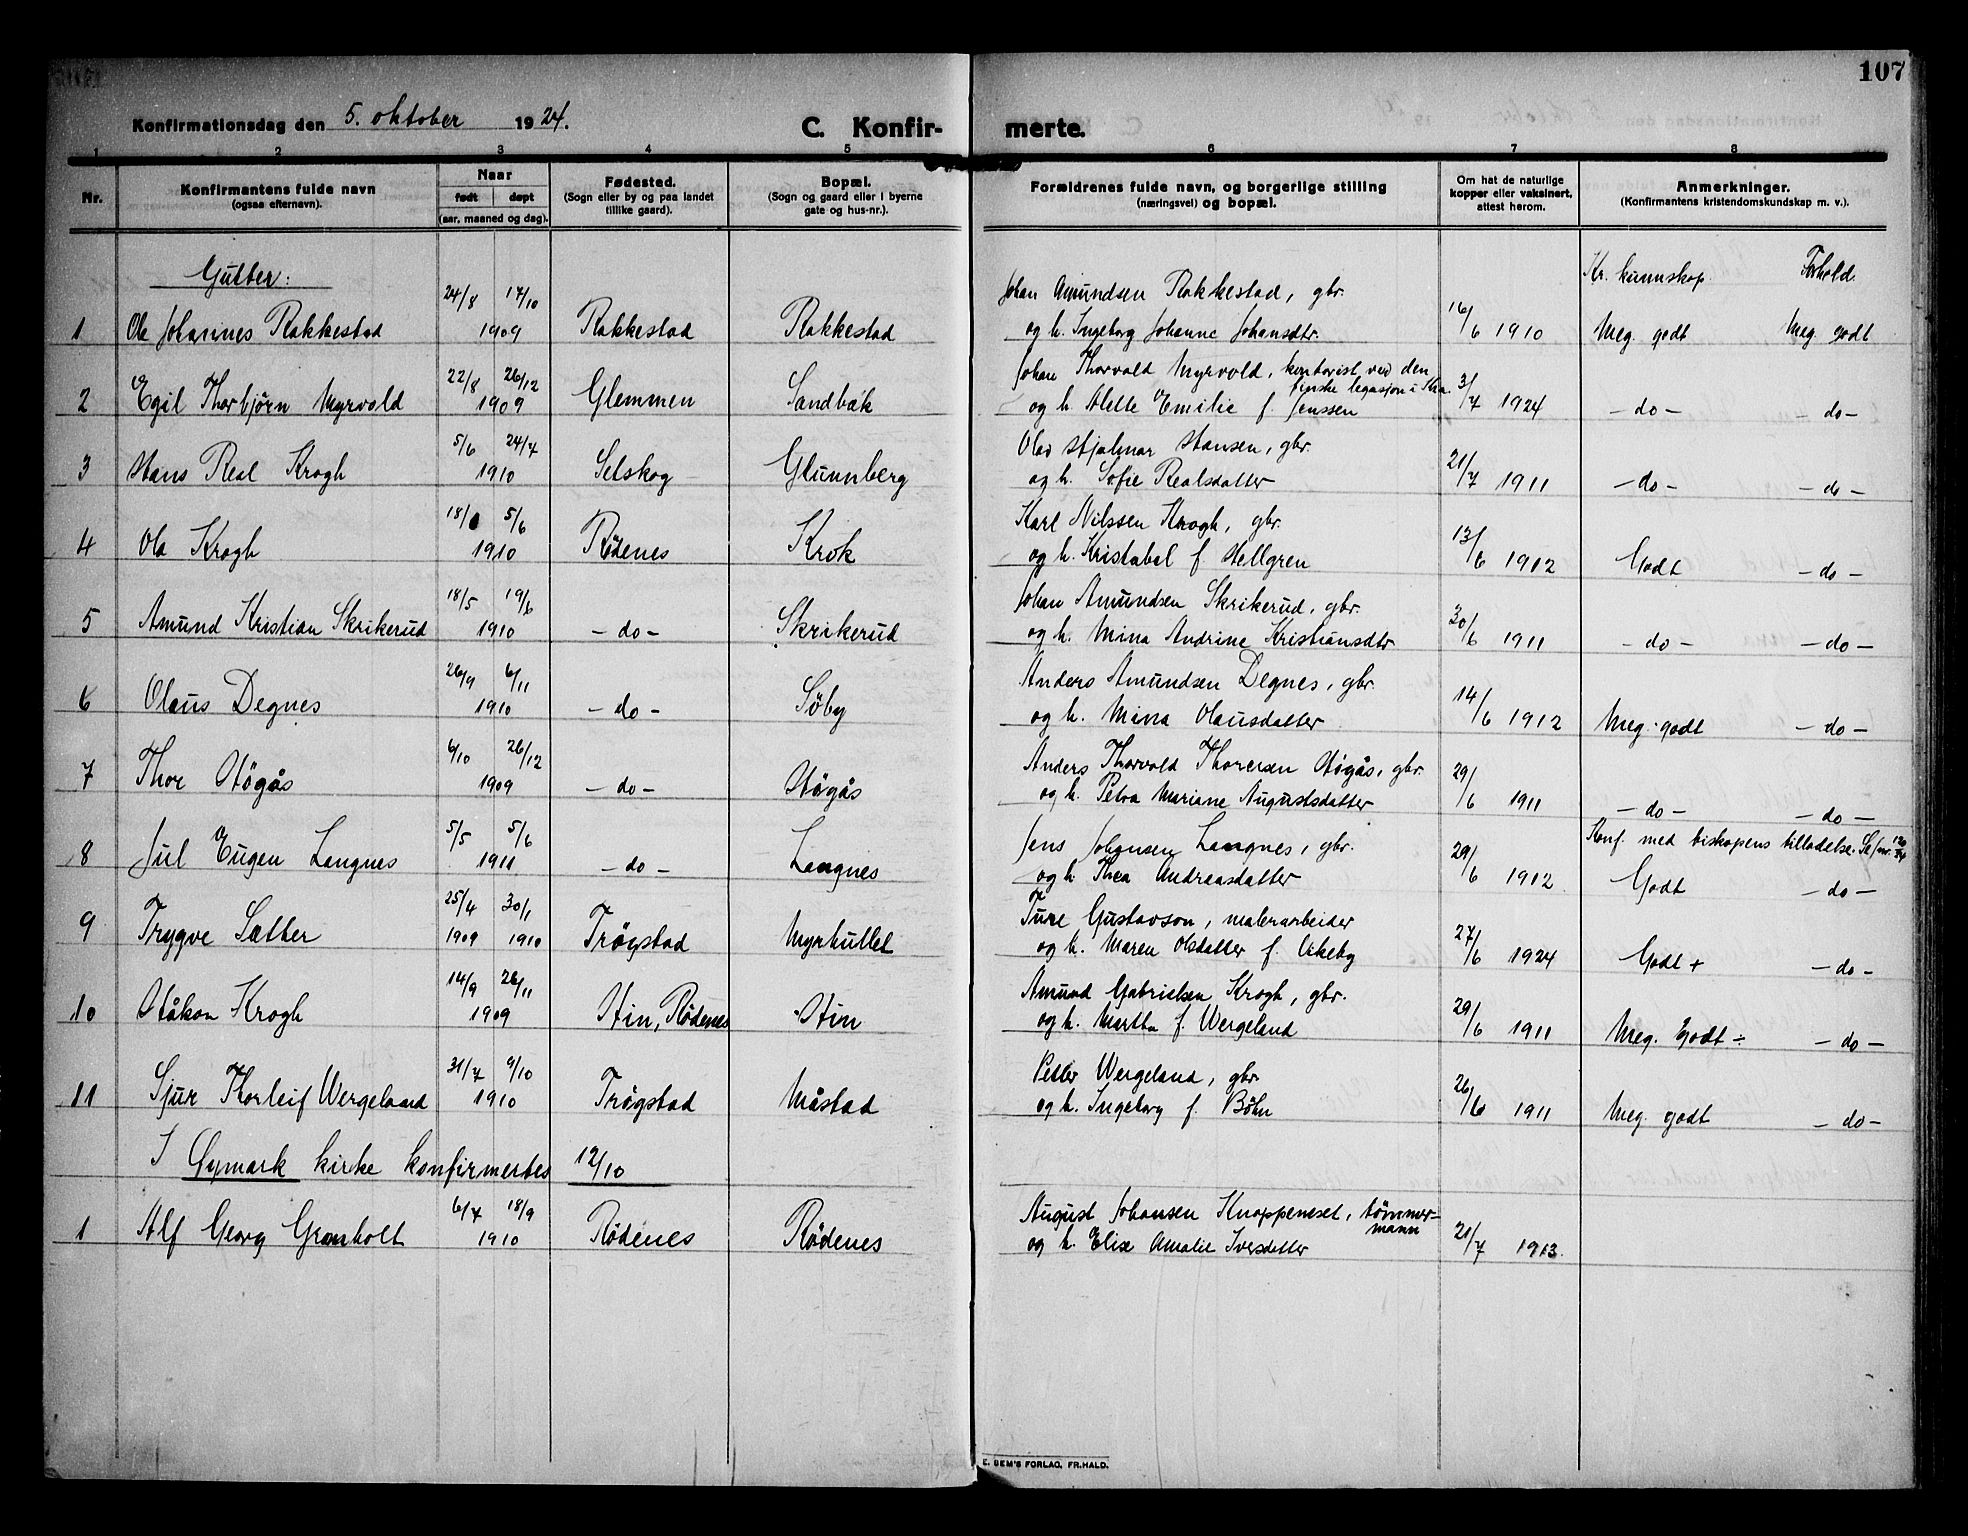 107
Konfirmationsdag den 5. oktober 1924.
C. Konfir- merte.
1 2 3 4 5 6 7 8
Nr. Konfirmantens fulde navn Naar Fødested. Bopæl. Forældrenes fulde navn, og borgerlige stilling Om hat de naturlige Anmerkninger.
(ogsaa efternavn). født døpt (Sogn eller by og paa landet (Sogn og gaard eller i byerne (næringsvei) og bopæl. kopper eller vaksinert, (Konfirmantens kristendomskundskap m. v.).
(aar, maaned og dag). tillike gaard). gate og hus-nr.). attest herom.
Gutter: Kr. kunnskap. Forhold.
24/8 17/10 Johan Amundsen Rakkestad, gbr.
1 Ole Johannes Rakkestad 1909 Rakkestad Rakkestad og h. Ingeborg Johanne Johansdtr. 16/6 1910 Meg. godt Meg. godt
22/8 26/12 Johan Thorvald Myrvold, kontorist ved den
finske legasjon i Kra.
2 Egil Thorbjørn Myrvold 1909 Glemmen Sandbæk og h. Alette Emilie f. Jenssen 3/7 1924 - do - - do -
5/6 24/7 Olav Hjalmar Hansen, gbr.
3 Hans Real Krogh 1910 Setskog Glunnberg og h. Sofie Realsdatter 21/7 1911 - do - - do -
5/6 Karl Nilssen Krogh, gbr.
4 Ola Krogh 1910 Rödenes Krok og h. Kristabel f. Hellgren 13/6 1912 Godt - do -
18/5 19/6 Johan Amundsen Skrikerud, gbr.
5 Amund Kristian Skrikerud 1910 - do - Skrikerud og h. Mina Andrine Kristiansdtr 30/6 1911 - do - - do -
26/9 6/11 Anders Amundsen Degnes, gbr.
6 Olaus Degnes 1910 - do - Söby og h. Mina Olausdatter 14/6 1912 Meg. godt - do -
6/10 26/12 Anders Thorvald Thoresen Høgås, gbr.
7 Thor Høgås 1909 - do - Høgås og h. Petra Mariane Augustsdatter 29/6 1911 - do - - do -
5/5 5/6 Jens Johansen Langnes, gbr. Konf. med biskopens tilladelse.
8 Jul Eugen Langnes 1911 - do - Langnes og h Thea Andreasdatter 29/6 1912 Godt - do -
25/4 30/1 Ture Gustavson, malerarbeider
9 Trygve Sætter 1909 1910 Trøgstad Myrhullet og h. Maren Olsdatter f. Ukeby 27/6 1924 Godt + - do -
14/9 26/11 Amund Gabrielsen Krogh, gbr.
10 Håkon Krogh 1909 Hin, Rödenes Hin og h. Martha f. Wergeland 29/6 1911 Meg. godt ÷ - do -
31/7 9/10 Petter Wergeland, gbr.
11 Sjur Thorleif Wergeland 1910 Trøgstad Måstad og h. Ingeborg f. Böhn 26/6 1911 Meg. godt - do -
I Øymark kirke konfirmertes 12/10
6/7 18/9 August Johansen Knappeneset, tømmer-
mann
1 Alf Georg Grønholt 1910 Rödenes Rödenes og h. Elise Amalie Iversdatter 21/7 1913.
E. SEM'S FORLAG, FR.HALD.